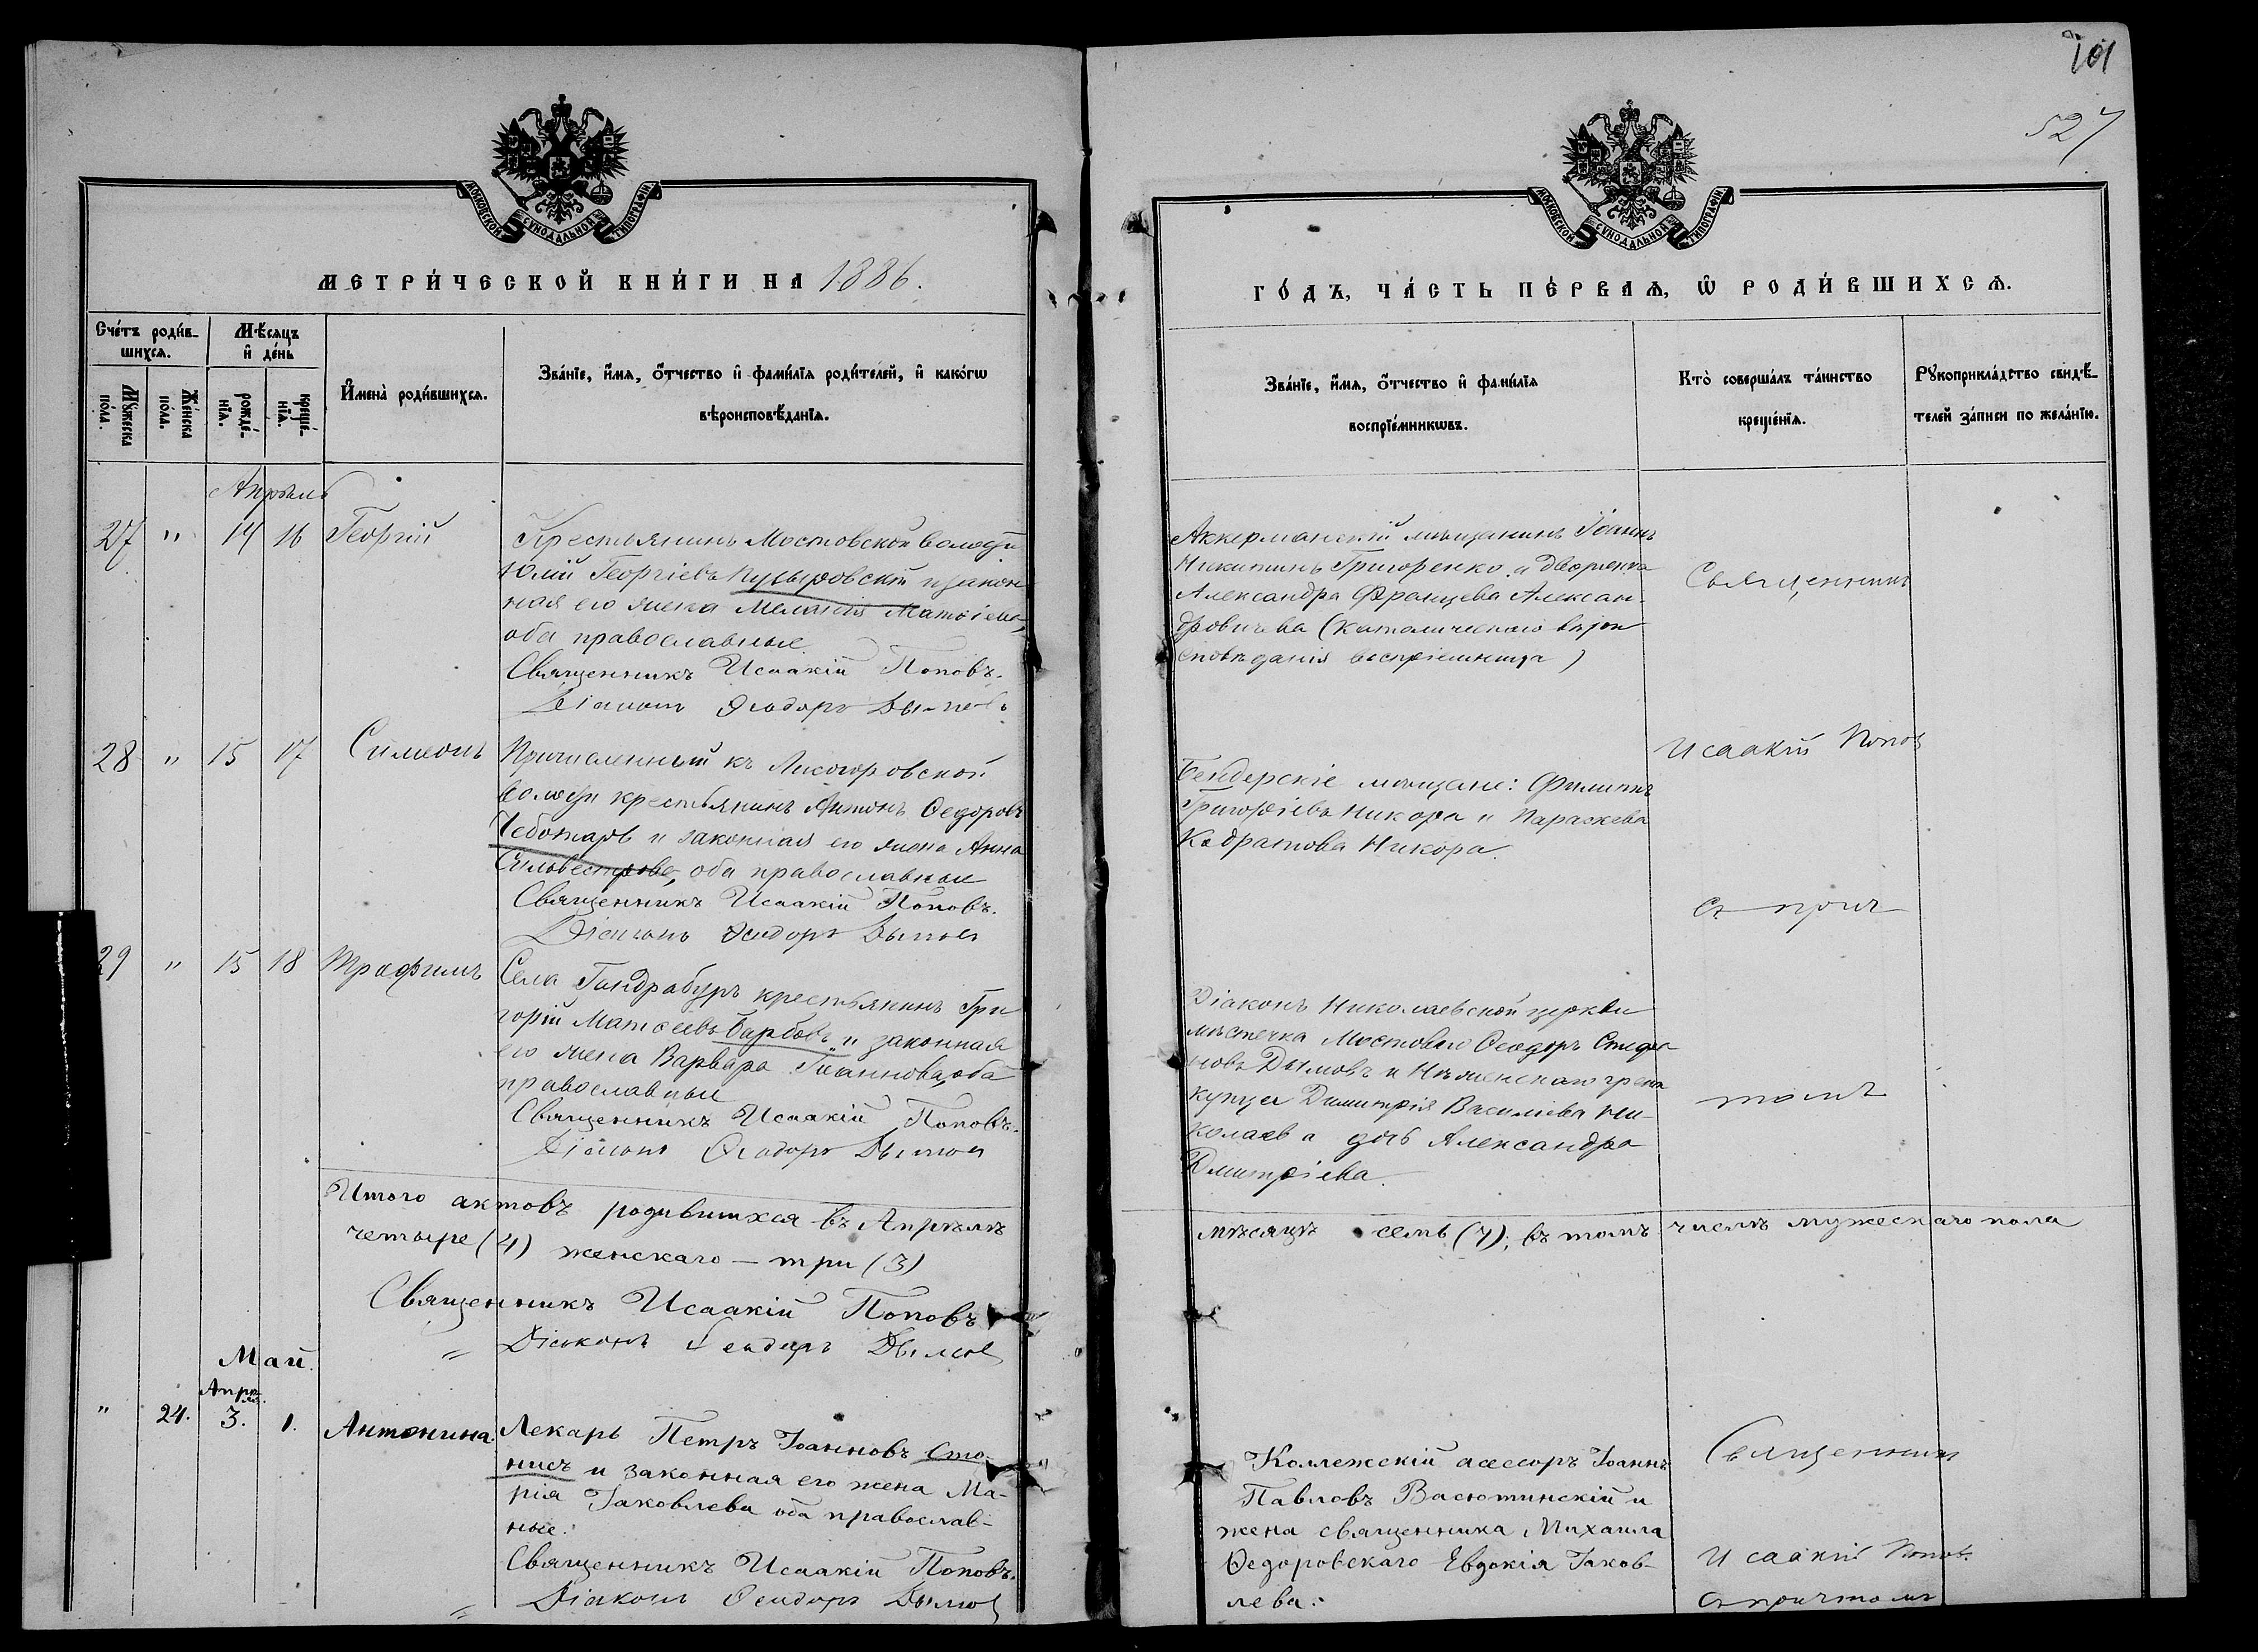 101
527
МОСКОВСКОЙ СѴНОДАЛЬНОЙ ТИПОГРАФІИ
МОСКОВСКОЙ СѴНОДАЛЬНОЙ ТИПОГРАФІИ
МЕТРИ́ЧЕСКОЙ КНИ́ГИ НА 1886.
ГО́ДЪ, ЧА́СТЬ ПЕ́РВАѦ, Ѡ РОДИ́ВШИХСѦ.
Сче́тъ роди́в-
шихсѧ.
Мꙋ́жеска по́ла.
Же́нска по́ла.
Мѣ́сѧцъ
и҆ де́нь
рожде́-
нїѧ.
креще́-
нїѧ.
И҆мена̀ роди́вшихсѧ.
Зва́нїе, и҆́мѧ, ѻ҆́тчество и҆ фами́лїѧ роди́телей, и҆ како́гѡ
вѣроисповѣ́данїѧ.
Зва́нїе, и҆́мѧ, ѻ҆́тчество и҆ фами́лїѧ
воспрїе́мникѡвъ.
Кто̀ соверша́лъ та́инство
креще́нїѧ.
Рꙋкоприкла́дство свидѣ́-
телей за́писи по жела́нїю.
Апрѣль
27 " 14 16 Георгій
Крестьянинъ Мостовской волости
Юлій Георгіевъ и закон
ная его жена Меланія Матѳіева,
оба православные.
Священникъ Исаакій Поповъ.
Діаконъ Ѳеодоръ Дымовъ
Аккерманскій мѣщанинъ Іоаннъ
Никитинъ Григоренко и дворянка
Александра Францева Алексан-
дровичева (католическаго вѣрои
сповѣданія воспріемница)
Священникъ
28 " 15 17 Симеонъ
Причисленный къ Лисогоровской
волости крестьянинъ Антонъ Ѳедоровъ
Чеботарь и законная его жена Анна
Сильвестрова, оба православные
Священникъ Исаакій Поповъ.
Діаконъ Ѳеодоръ Дымовъ
Исаакій Попов
Бендерскіе мѣщане: Филиппъ
Григоріевъ Никора и Параскева
Кодратова Никора.
съ прич
29 " 15 18 Трофимъ
Села Гандрабуръ крестьянинъ Гри
горій Матѳеевъ Барбовъ и законная
его жена Варвара Іоаннова, оба
православные
Священникъ Исаакій Поповъ.
Діаконъ Ѳеодоръ Дымовъ
Діаконъ Николаевской церкви
мѣстечка Мостоваго Ѳеодоръ Стефа
новъ Дымовъ и Нѣженскаго грека
купца Димитрія Василіева Ни-
колаева дочь Александра
Дмитріева.
томъ
Итого актовъ родившихся въ Апрѣлѣ
мѣсяцѣ семь (7); въ томъ числѣ мужескаго пола
четыре (4) женскаго — три (3)
Священникъ Исаакій Поповъ
" Діаконъ Ѳеодоръ Дымов
Май.
Апрѣ
ля.
" 24. 3. 1. Антонина.
Лекарь Петръ Іоанновъ Сто-
ницъ и законная его жена Ма-
рія Іаковлева оба православ-
ные.
Священникъ Исаакій Поповъ.
" Діаконъ Ѳеодоръ Дымов
Коллежскій асессоръ Іоаннъ
Павловъ Васютинскій и
жена священника Михаила
Ѳедоровскаго Евдокія Іаков-
лева.
Священник
Исаакій Попов.
съ причтомъ